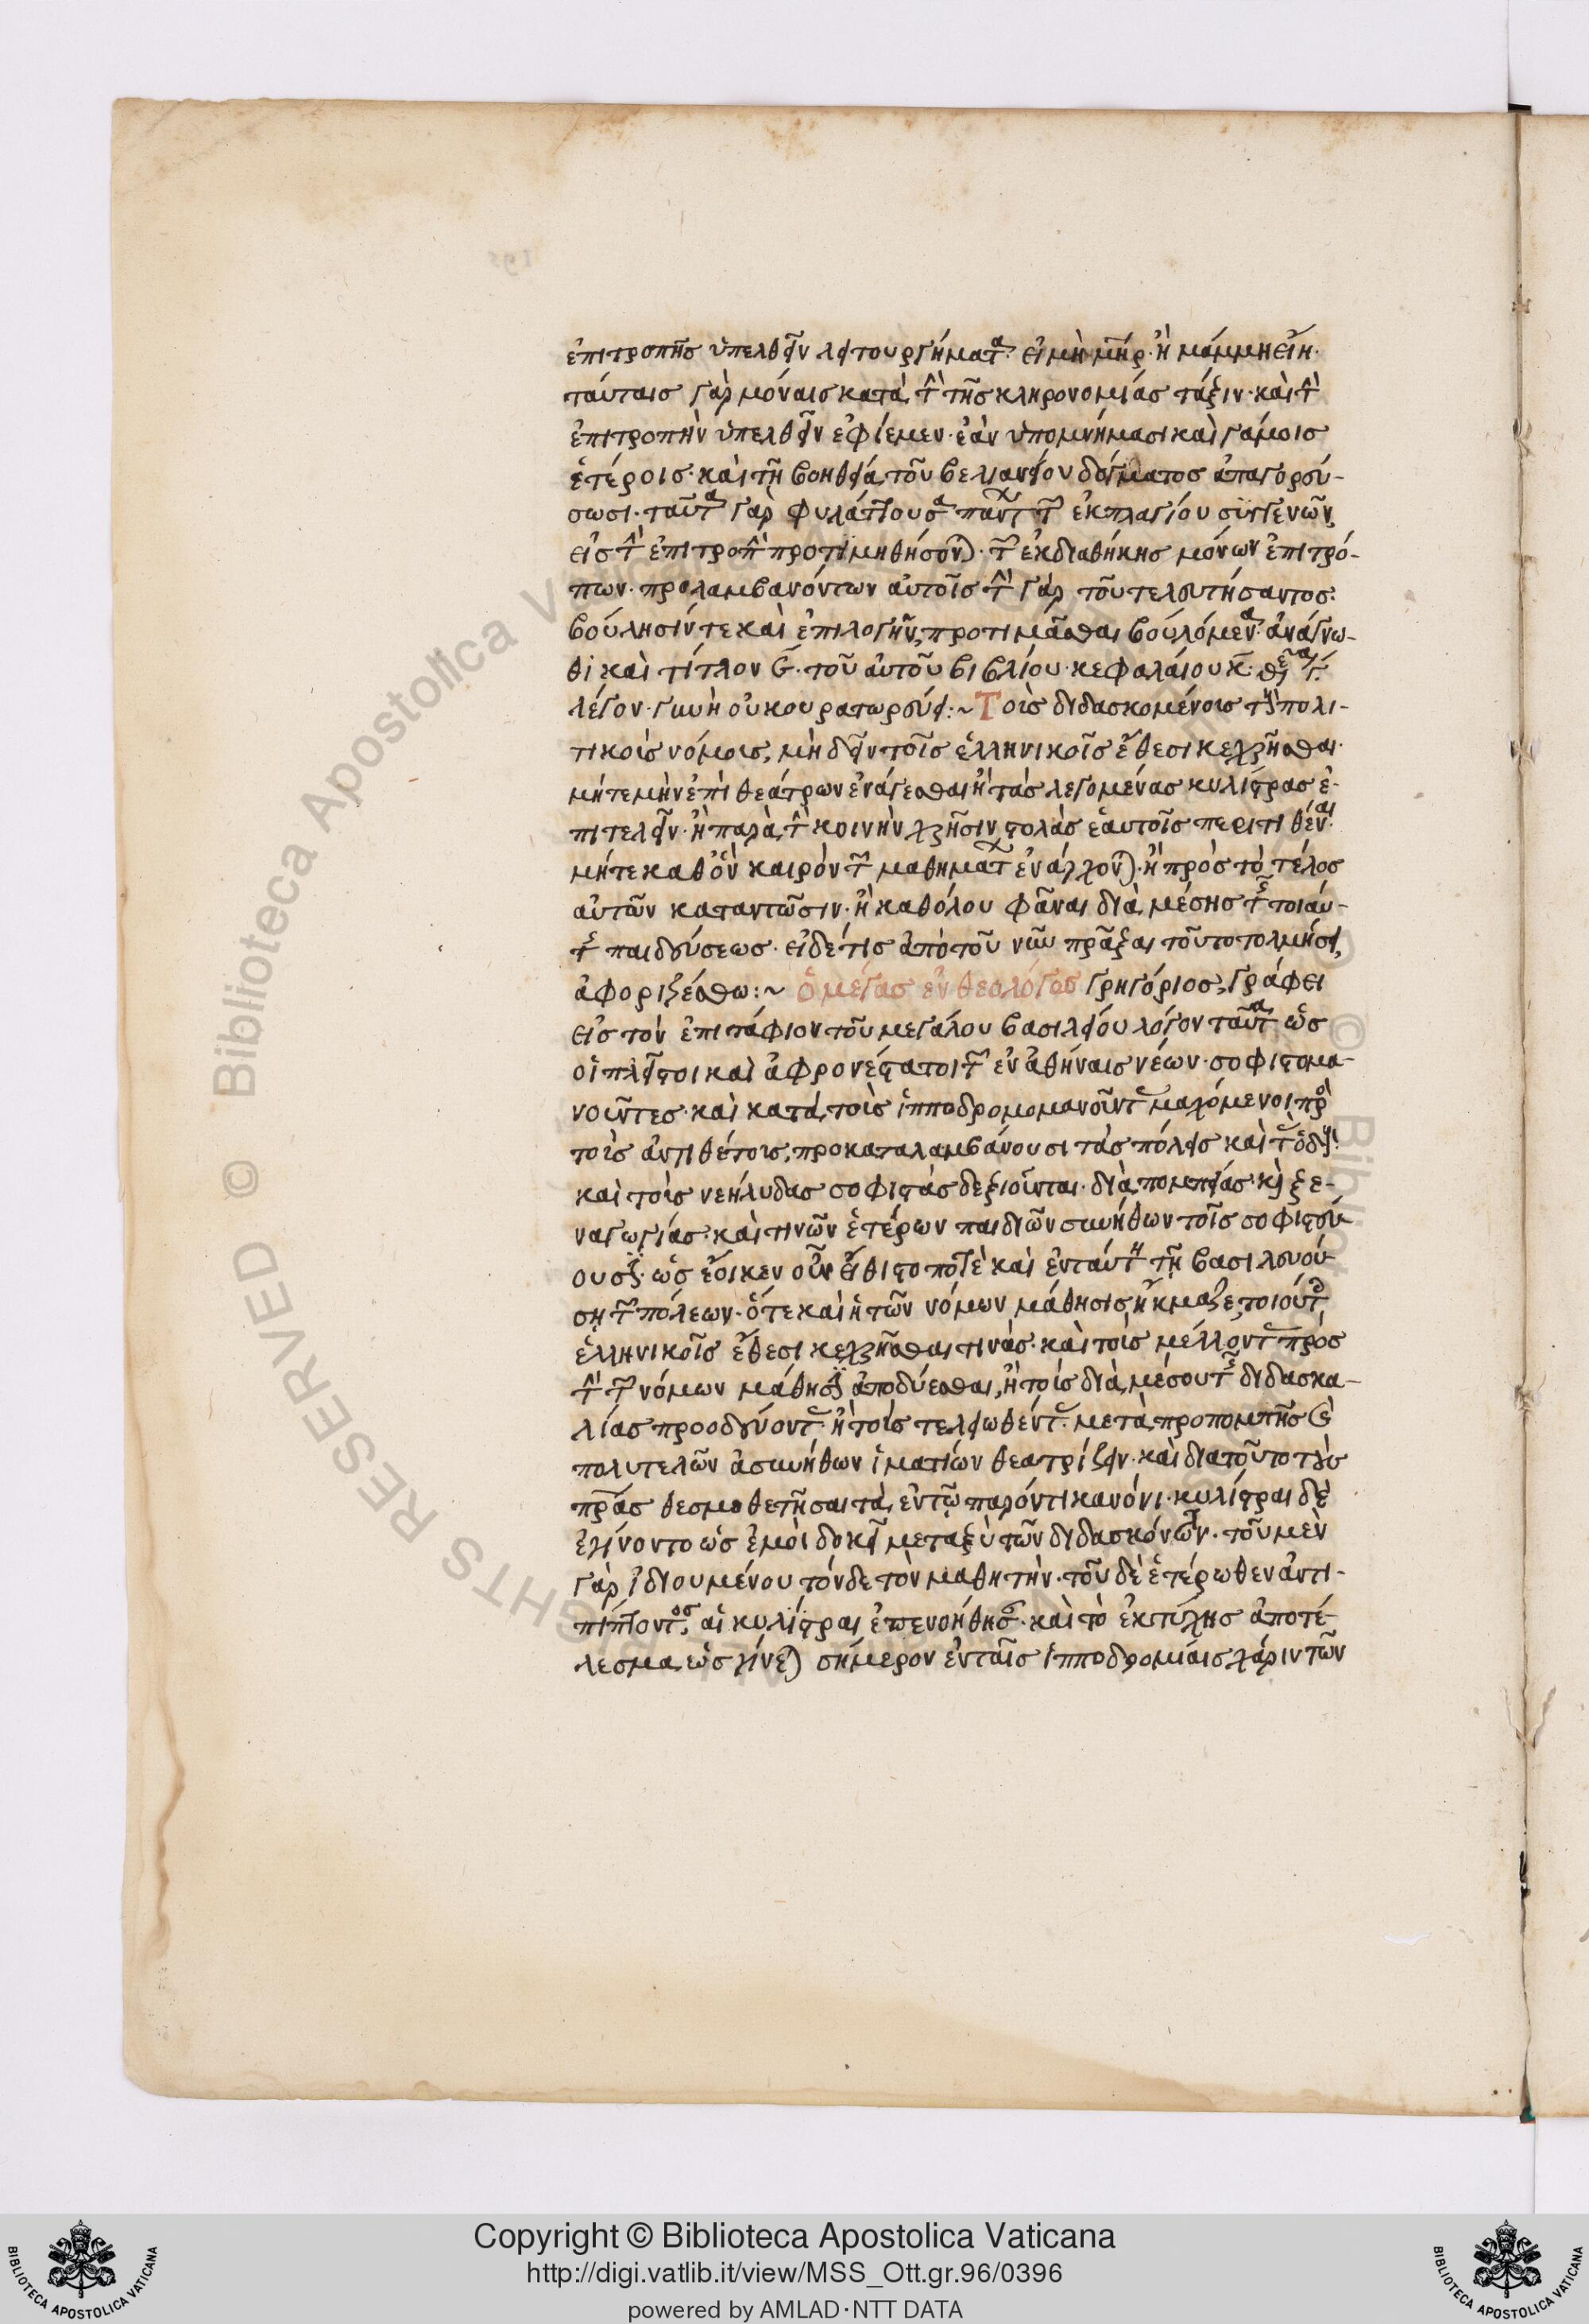 ἐπιτροπῆς ὑπελθεῖν λειτουργήματα· εἰ μὴ μῆρ· ἢ μάμμη εἴη·
ταύταις γὰρ μόναις κατὰ τὴν τῆς κληρονομίας τάξιν· καὶ τὴν
ἐπιτροπὴν ὑπελθεῖν ἐφίεμεν· ἐὰν ὑπομνήμασι καὶ γάμοις
ἑτέροις· καὶ τῇ βοηθείᾳ τοῦ βελιανείου δόγματος ἀπαγορεύ-
σωσι· ταῦτα γὰρ φυλάττουσαι πάντων τῶν ἐκ πλαγίου συγγενῶν
εἰς τὴν ἐπιτροπὴν προτιμηθήσονται· τῶν ἐκ διαθήκης μόνων ἐπιτρό-
πων· προλαμβανόντων αὐτοῖς τὴν γὰρ τοῦ τελευτήσαντος
βούλησίν τε καὶ ἐπιλογὴν, προτιμᾶσθαι βουλόμενα· ἀνάγνω-
θι καὶ τίτλον ϛ· τοῦ αὐτοῦ βιβλίου· κεφαλαίου κ·
λέγον· γυνὴ οὐ κουρατωρεύει:~ Τοὺς διδασκομένους τοὺς πολι-
τικοὺς νόμους, μὴ δεῖν τοῖς ἑλληνικοῖς ἔθεσι κεχρῆσθαι·
μήτε μὴν ἐπὶ θεάτρων ἐνάγεσθαι ἢ τὰς λεγομένας κυλίστρας ἐ-
πιτελεῖν· ἢ παρὰ τὴν κοινὴν χρῆσιν στολὰς ἑαυτοῖς περιτιθέναι·
μήτε καθ' ὃν καιρὸν τῶν μαθημάτων ἐνάρχονται· ἢ πρὸς τὸ τέλος
αὐτῶν καταντῶσιν· ἢ καθόλου φᾶναι διὰ μέσης τῆς τοιαύ-
της παιδεύσεως· εἰ δέ τις ἀπὸ τοῦ νῦν πρᾶξαι τοῦτο τολμήσει,
ἀφοριζέσθω:~ ὁ μέγας ἐν θεολόγοις Γρηγόριος, γράφει
εἰς τὸν ἐπιτάφιον τοῦ μεγάλου βασιλείου λόγον ταῦτα ὡς
οἱ πλεῖστοι καὶ ἀφρονέστατοι τῶν ἐν ἀθήναις νέων· σοφιστομα-
νοῦντες· καὶ κατὰ τοὺς ἱπποδρομομανοῦντας μαχόμενοι πρὸς
τοὺς ἀντιθέτους, προκαταλαμβάνουσι τὰς πόλεις καὶ τὰς ὁδούς·
καὶ τοὺς νεήλυδας σοφιστὰς δεξιοῦνται· διὰ πομπείας· καὶ ξε-
ναγωγίας· καὶ τινῶν ἑτέρων παιδιῶν συνήθων τοῖς σοφιστεύ-
ουσιν· ὡς ἔοικεν οὖν εἴθιστο ποτὲ καὶ ἐνταύτῃ τῇ βασιλευού-
σῃ τῶν πόλεων· ὅτε καὶ ἡ τῶν νόμων μάθησις ἤκμαζε, τοιούτοις
ἑλληνικοῖς ἔθεσι κεχρῆσθαι τινάς· καὶ τοὺς μέλλοντας πρὸς
τὴν τῶν νόμων μάθησιν ἀποδύεσθαι, ἢ τοὺς διὰ μέσου τῆς διδασκα-
λίας προοδεύοντας· ἢ τοὺς τελειωθέντας· μετὰ προπομπῆς καὶ
πολυτελῶν ἀσυνήθων ἱματίων θεατρίζειν· καὶ διατοῦτο τοὺς
πρας θεσμοθετῆσαι τὰ ἐν τῷ παρόντι κανόνι· κυλίστραι δὲ
ἐγίνοντο ὡς ἐμοὶ δοκεῖ μεταξὺ τῶν διδασκόντων· τοῦ μὲν
γὰρ ἰδιουμένου τόνδε τὸν μαθητὴν· τοῦ δὲ ἑτέρωθεν ἀντι-
πίπτοντος, αἱ κυλίστραι ἐπενοήθησαν· καὶ τὸ ἐκ τύχης ἀποτέ-
λεσμα ὡς γίνεται σήμερον ἐν ταῖς ἱπποδρομίαις χάριν τῶν
Copyright © Biblioteca Apostolica Vaticana
http://digi.vatlib.it/view/MSS_Ott.gr.96/0396
powered by AMLAD·NTT DATA